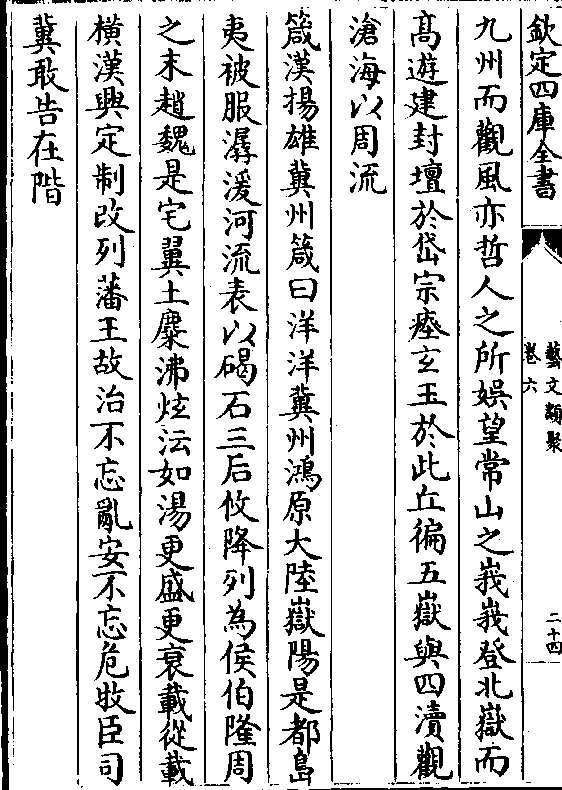 欽定四庫全書
藝文類聚
卷六
二十四
九州而觀風亦哲人之所娯望常山之峩峩登北嶽而
髙遊建封壇於岱宗瘞玄玉於此丘徧五嶽與四瀆觀
滄海以周流
箴漢揚雄冀州箴曰洋洋冀州鴻原大陸嶽陽是都島
夷被服潺湲河流表以碣石三后攸降列為侯伯隆周
之末趙魏是宅翼土麋沸炫沄如湯更盛更衰載從載
橫漢興定制改列藩王故治不忘亂安不忘危牧臣司
冀敢告在階